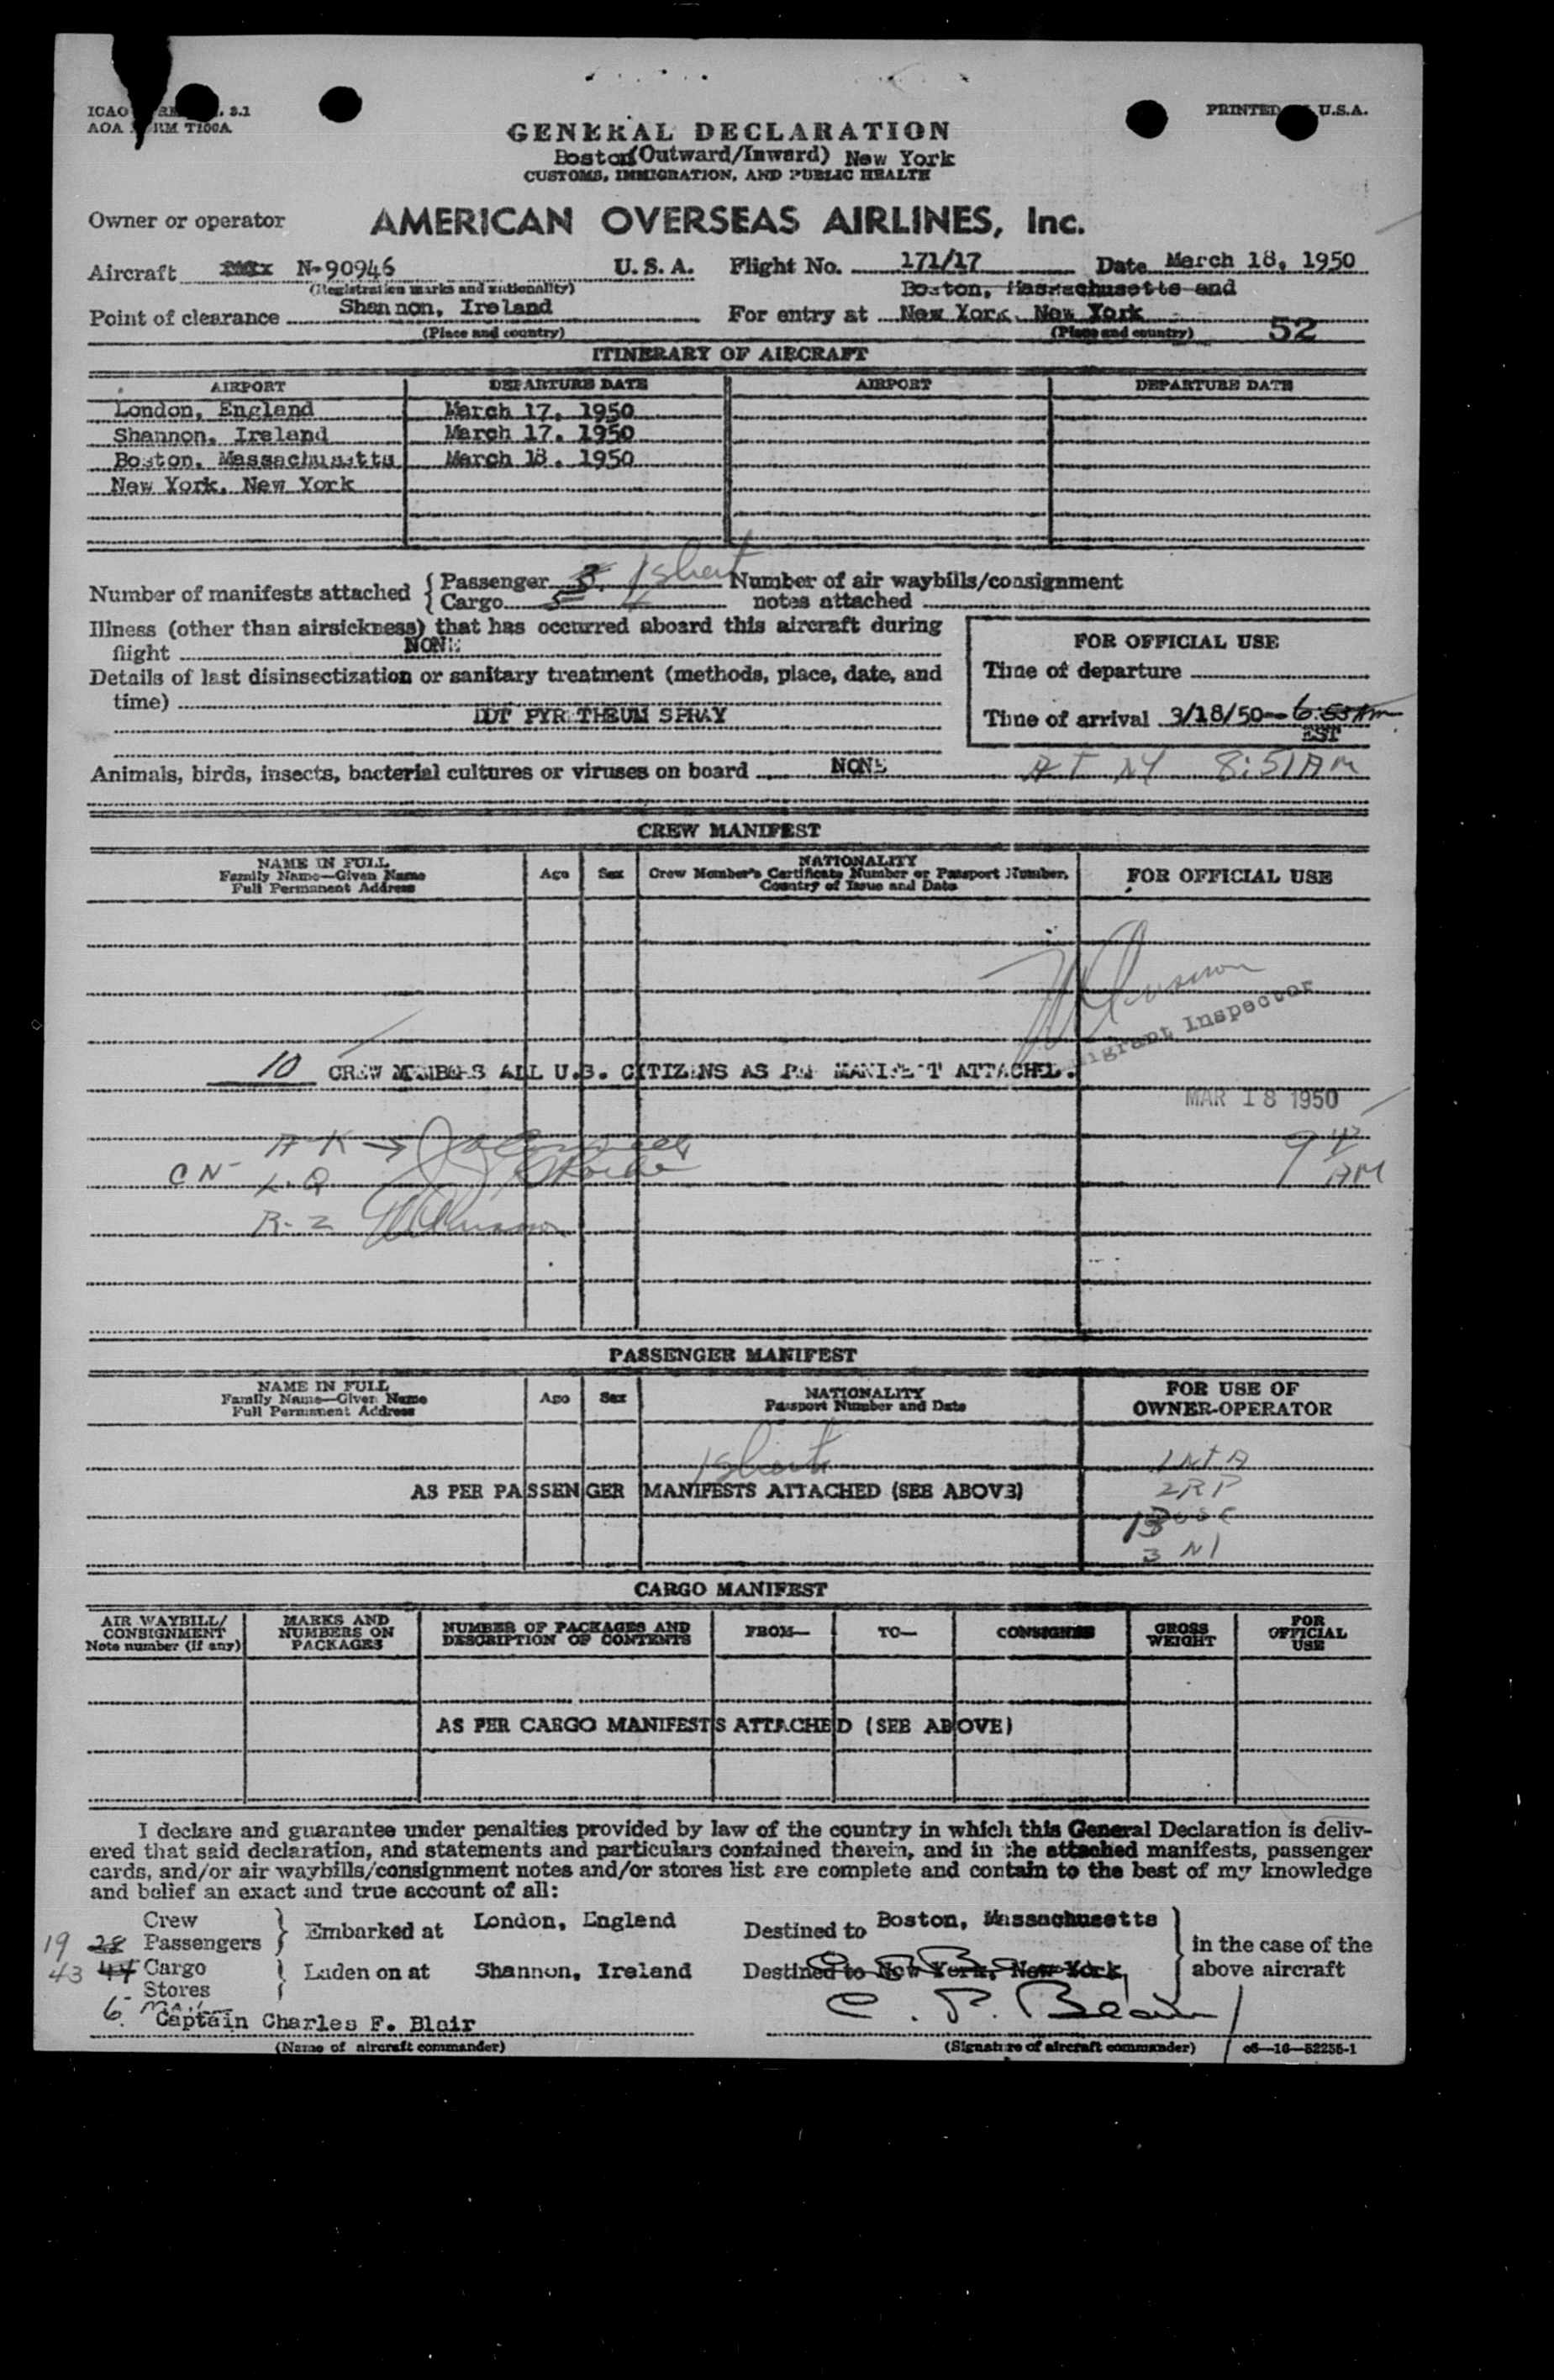 ICAO 3.1 PRINTED U.S.A.
AOA FORM T100A
GENERAL DECLARATION
Boston (Outward/Inward) New York
CUSTOMS, IMMIGRATION, AND PUBLIC HEALTH
Owner or operator AMERICAN OVERSEAS AIRLINES, Inc.
Aircraft N-90946 U. S. A. Flight No. 171/17 Date March 18, 1950
(Registration marks and nationality) Boston, Massachusetts and
Point of clearance Shannon, Ireland For entry at New York, New York
(Place and country) (Place and country) 52
ITINERARY OF AIRCRAFT
AIRPORT DEPARTURE DATE AIRPORT DEPARTURE DATE
London, England March 17, 1950
Shannon, Ireland March 17, 1950
Boston, Massachusetts March 18, 1950
New York, New York
Number of manifests attached { Passenger 3 1 sheet Number of air waybills/consignment
Cargo 5 notes attached
Illness (other than airsickness) that has occurred aboard this aircraft during
flight NONE
FOR OFFICIAL USE
Details of last disinsectization or sanitary treatment (methods, place, date, and
time) DDT PYRETHEUM SPRAY
Time of departure
Time of arrival 3/18/50 6:55 Am
EST
Animals, birds, insects, bacterial cultures or viruses on board NONE AT NY 8:51 AM
CREW MANIFEST
NAME IN FULL
Family Name—Given Name
Full Permanent Address
Age Sex
NATIONALITY
Crew Member's Certificate Number or Passport Number,
Country of Issue and Date
FOR OFFICIAL USE
Inspector
10 CREW MEMBERS ALL U.S. CITIZENS AS PER MANIFEST ATTACHED.
MAR 18 1950
A-K →
9 AM
CN- L-Q
R-Z
PASSENGER MANIFEST
NAME IN FULL
Family Name—Given Name
Full Permanent Address
Age Sex
NATIONALITY
Passport Number and Date
FOR USE OF
OWNER-OPERATOR
1 sheet
AS PER PASSENGER MANIFESTS ATTACHED (SEE ABOVE)
2 RP
13
3 NI
CARGO MANIFEST
AIR WAYBILL/
CONSIGNMENT
Note number (if any)
MARKS AND
NUMBERS ON
PACKAGES
NUMBER OF PACKAGES AND
DESCRIPTION OF CONTENTS
FROM— TO— CONSIGNEE
GROSS
WEIGHT
FOR
OFFICIAL
USE
AS PER CARGO MANIFESTS ATTACHED (SEE ABOVE)
I declare and guarantee under penalties provided by law of the country in which this General Declaration is deliv-
ered that said declaration, and statements and particulars contained therein, and in the attached manifests, passenger
cards, and/or air waybills/consignment notes and/or stores list are complete and contain to the best of my knowledge
and belief an exact and true account of all:
Crew
19 28 Passengers } Embarked at London, England Destined to Boston, Massachusetts } in the case of the
43 44 Cargo } Laden on at Shannon, Ireland Destined to New York, New York above aircraft
Stores
6 C. F. Blair
Captain Charles F. Blair
(Name of aircraft commander) (Signature of aircraft commander) 06—16—52255-1